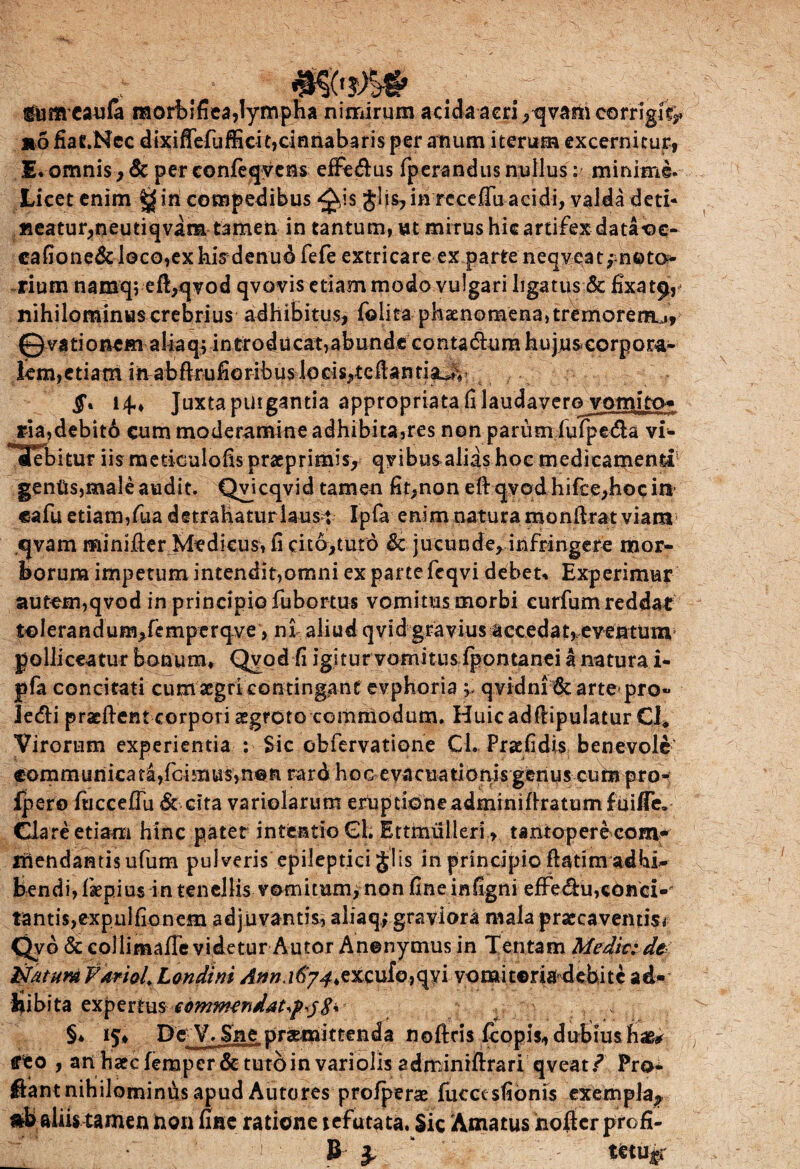 §(13)§
cum causa morbifica, lympha nimirum acida acri, qvam corrigit,
nô fiat. Nec dixisse sufficit, cinnabaris per anum iterum excernitur,
E. omnis, & per conseqvens effectus sperandus nullus: minimè.
Licet enim ☿ in compedibus is ♃lis, in recessu acidi, valdà deti-
neatur, neutiqvàm tamen in tantum, ut mirus hic artifex datâ oc-
casione & loco, ex his denuò sese extricare ex parte neqveat; noto-
rium namq; est, qvod qvovis etiam modo vulgari ligatus & fixat9,
nihilominus crebrius adhibitus, solita phænomena, tremorem,
vationem aliaq; introducat, abunde contactum hujus corpora-
lem, etiam in abstrusioribus locis, testantia.
§. 14. Juxta purgantia appropriata si laudavero vomito-
ria, debitô cum moderamine adhibita, res non parùm suspecta vi-
debitur iis meticulosis præprimis, qvibus aliàs hoc medicamenti
genûs, malè audit. Qvicqvid tamen fit, non est qvod hisce, hoc in
casu etiam, sua detrahatur laus: Ipsa enim natura monstrat viam
qvam minister Medicus, si citò, tutò & jucunde, infringere mor-
borum impetum intendit, omni ex parte seqvi debet. Experimur
autem, qvod in principio subortus vomitus morbi cursum reddat
tolerandum, semperqve, ni aliud qvid gravius accedat, eventum
polliceatur bonum. Qvod si igitur vomitus spontanei à natura i-
psa concitati cum ægri contingant evphoria; qvidni & arte pro-
lecti præstent corpori ægroto commodum. Huic adstipulatur Cl.
Virorum experientia: Sic observatione Cl. Præsidis benevolè
communicatâ, scimus, non rarò hoc evacuationis genus cum pro-
spero successu & cita variolarum eruptione administratum fuisse.
Clarè etiam hinc patet intentio Cl. Ettmülleri, tantoperè com-
mendantis usum pulveris epileptici ♃lis in principio statim adhi-
bendi, sæpius in tenellis vomitum, non sine insigni effectu, conci-
tantis, expulsionem adjuvantis, aliaq; graviora mala præcaventis.
Qvò & collimasse videtur Autor Anonymus in Tentam Medic: de
Natura Variol. Londini Ann. 1674. excuso, qvi vomitoria debitè ad-
hibita expertus commendat. p. 58.
§. 15. De V. Sne præmittenda nostris scopis, dubius hæ-
reo, an hæc semper & tutò in variolis administrari qveat? Pro-
stant nihilominùs apud Autores prosperæ successionis exempla,
ab aliis tamen non sine ratione refutata. Sic Amatus noster profi-
B 3 tetur